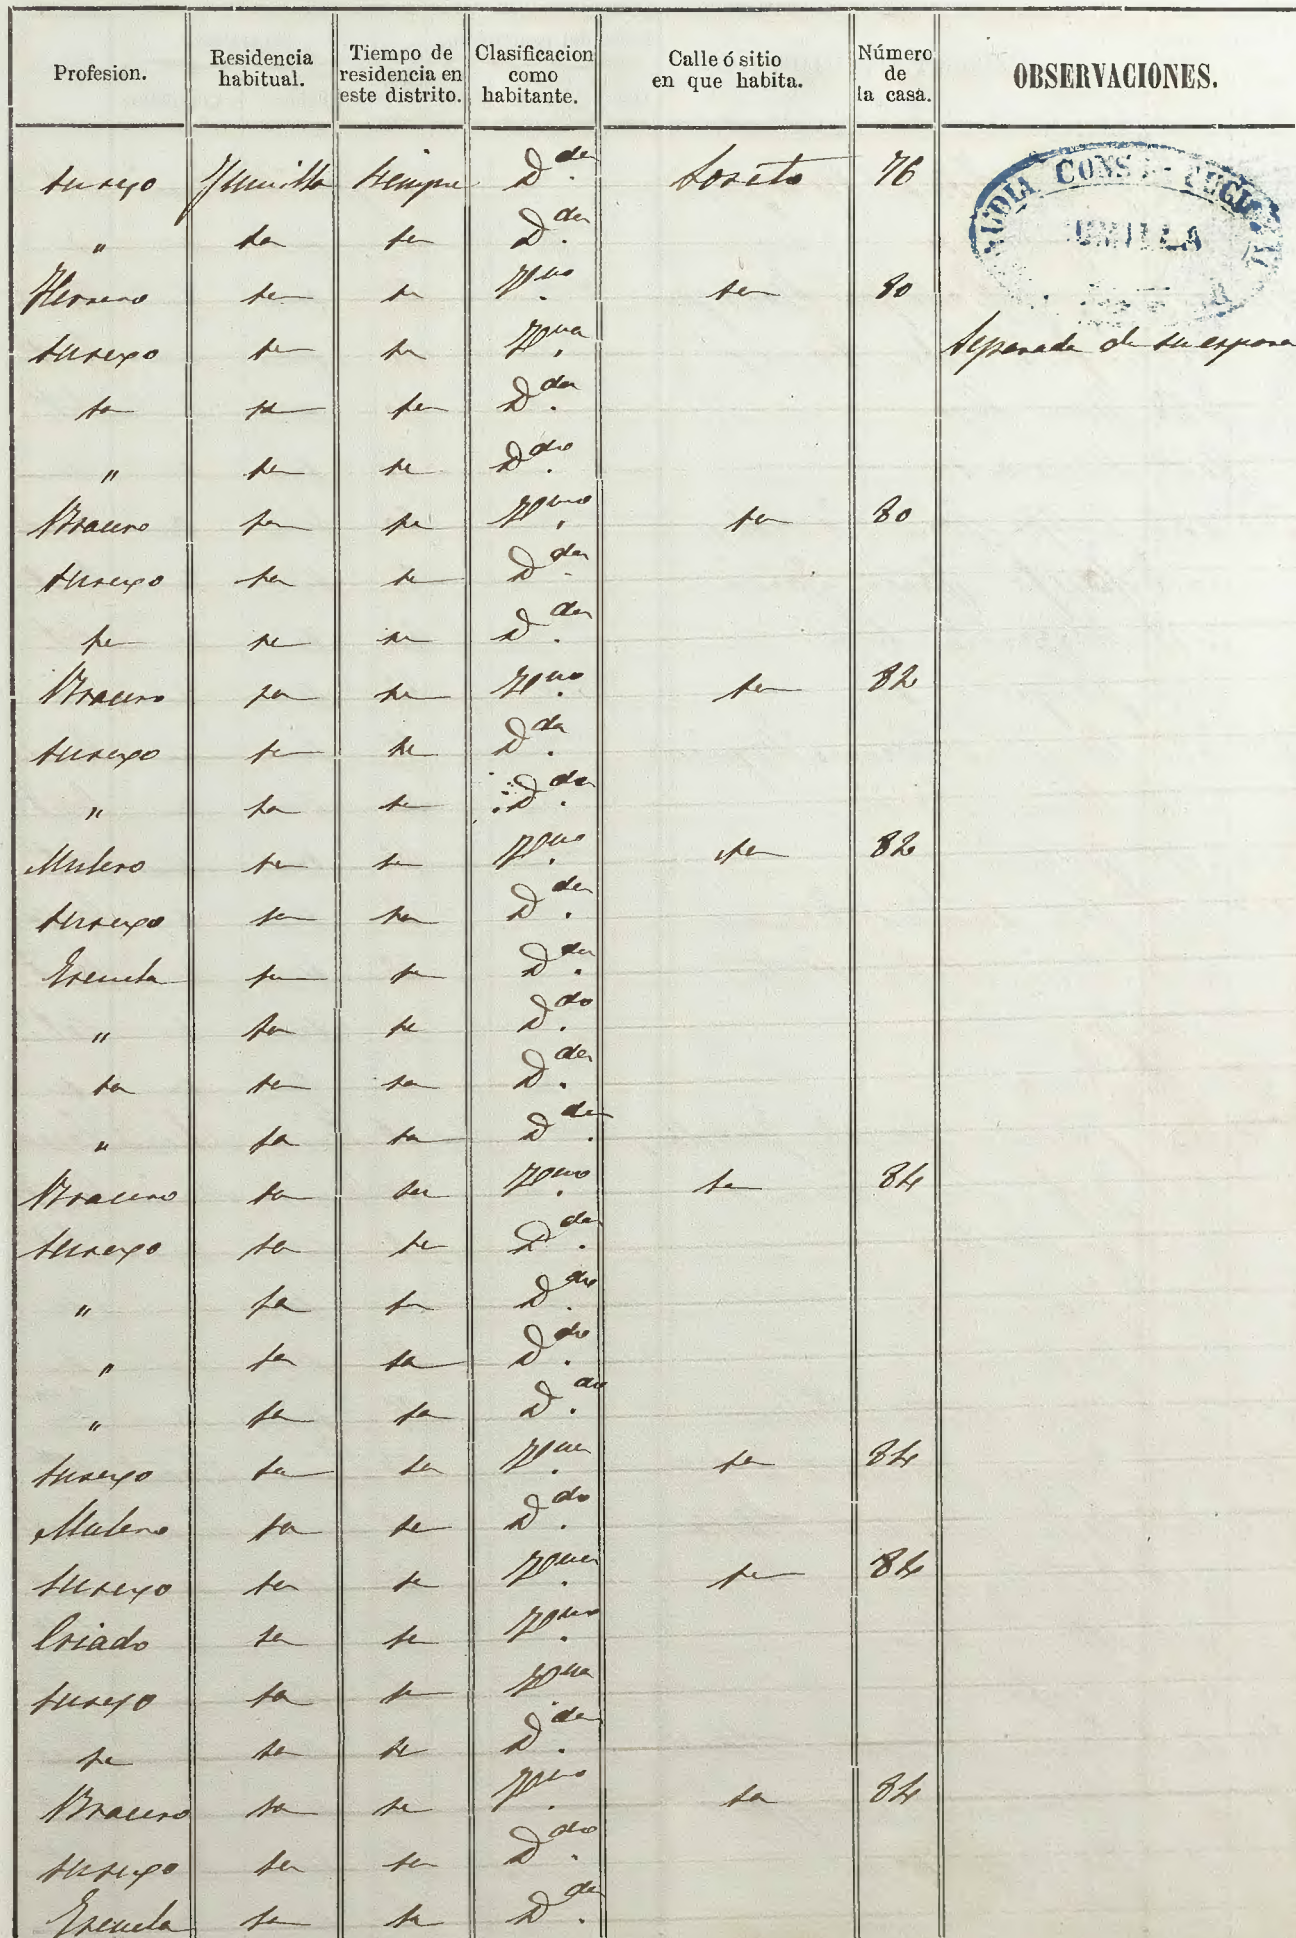 Profesion. Residencia habitual. Tiempo de residencia en este distrito. Clasificacion como habitante. Calle ó sitio en que habita. Número de la casa. OBSERVACIONES.
su sexo Jumilla siempre D.da Loreto 76
" sa sa D.da
Herrero sa sa V.no sa 80
su sexo sa sa V.na Separada de su esposo
sa sa sa D.da
" sa sa D.do
Bracero sa sa V.no sa 80
su sexo sa sa D.da
sa sa sa D.da
Bracero sa sa V.no sa 82
su sexo sa sa D.da
" sa sa D.da
Mulero sa sa V.no sa 82
su sexo sa sa D.da
Escuela sa sa D.da
" sa sa D.do
sa sa sa D.da
" sa sa D.da
Bracero sa sa V.no sa 84
su sexo sa sa D.da
" sa sa D.do
" sa sa D.do
" sa sa D.do
su sexo sa sa V.na sa 84
Mulero sa sa D.do
su sexo sa sa V.na sa 84
Criado sa sa V.no
su sexo sa sa V.na
sa sa sa D.da
Bracero sa sa V.no sa 84
su sexo sa sa D.da
Escuela sa sa D.da